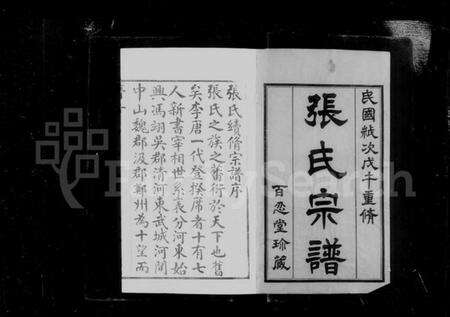 民國紀次戊午重脩
張氏宗譜
百忍堂珍藏
張氏續脩宗譜序
張氏之族之蕃衍於天下也舊
矣李唐一代登揆席者十有七
人新書宰相世系表分河東始
興馮翊吳郡清河東武城河間
中山魏郡汲郡鄭州為十望而
FamilySearch